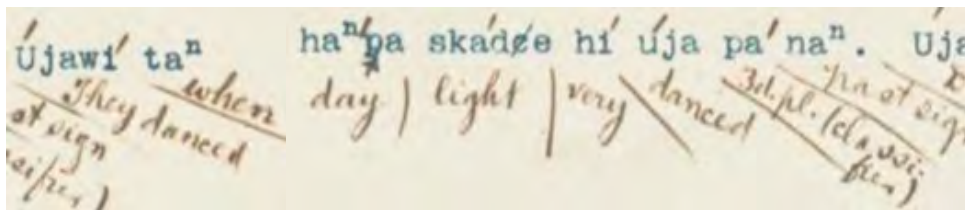 Újawí taⁿ haⁿ́pa skádȼe hí úja pa′naⁿ. Uja
They danced when day | light | very danced 3d. pl. (classifier) past sign
st sign
sifier)